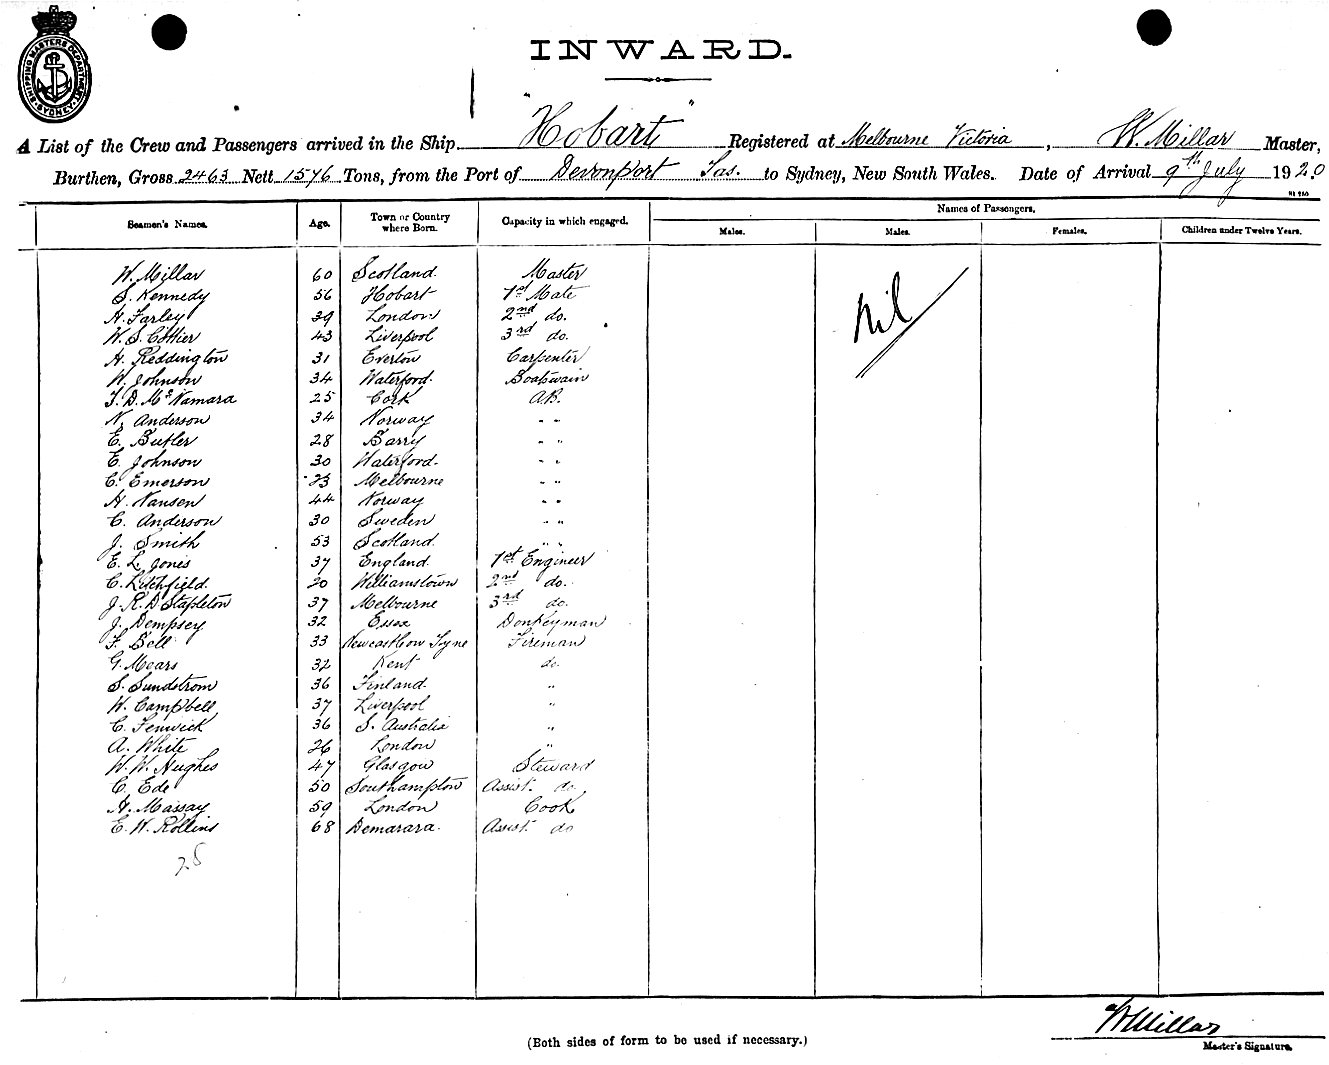 SHIPPING MASTERS DEPARTMENT SYDNEY
INWARD.
A List of the Crew and Passengers arrived in the Ship "Hobart" Registered at Melbourne Victoria, W. Millar Master,
Burthen, Gross 2463 Nett 1576 Tons, from the Port of Devonport Tas. to Sydney, New South Wales. Date of Arrival 9th July 1920
Names of Passengers.
Seamen's Names. Age. Town or Country where Born. Capacity in which engaged. Males. Males. Females. Children under Twelve Years.
W. Millar 60 Scotland. Master
S. Kennedy 56 Hobart 1st Mate
H. Farley 39 London 2nd do.
W. S. Cottier 43 Liverpool 3rd do.
H. Reddington 31 Everton Carpenter
W. Johnson 34 Waterford. Boatswain
T. D. McNamara 25 Cork A.B.
N. Anderson 34 Norway " "
E. Butler 28 Barry " "
E. Johnson 30 Waterford. " "
C. Emerson 23 Melbourne " "
H. Nansen 44 Norway " "
C. Anderson 30 Sweden " "
J. Smith 53 Scotland. " "
E. L. Jones 37 England. 1st Engineer
C. Litchfield. 20 Williamstown 2nd do.
J. R. D Stapleton 37 Melbourne 3rd do.
J. Dempsey 32 Essex Donkeyman
F. Bell 33 Newcastle on Tyne Fireman
G. Mears 32 Kent do.
S. Sundstrom 36 Finland. "
W. Campbell 37 Liverpool "
C. Fenwick 36 S. Australia "
A. White 26 London "
W. W. Hughes 47 Glasgow Steward
C. Ede 50 Southampton Assist. do.
H. Massay 59 London Cook
E. W. Rollins 68 Demarara. Assist. do
Nil
28
W Millar
Master's Signature.
(Both sides of form to be used if necessary.)